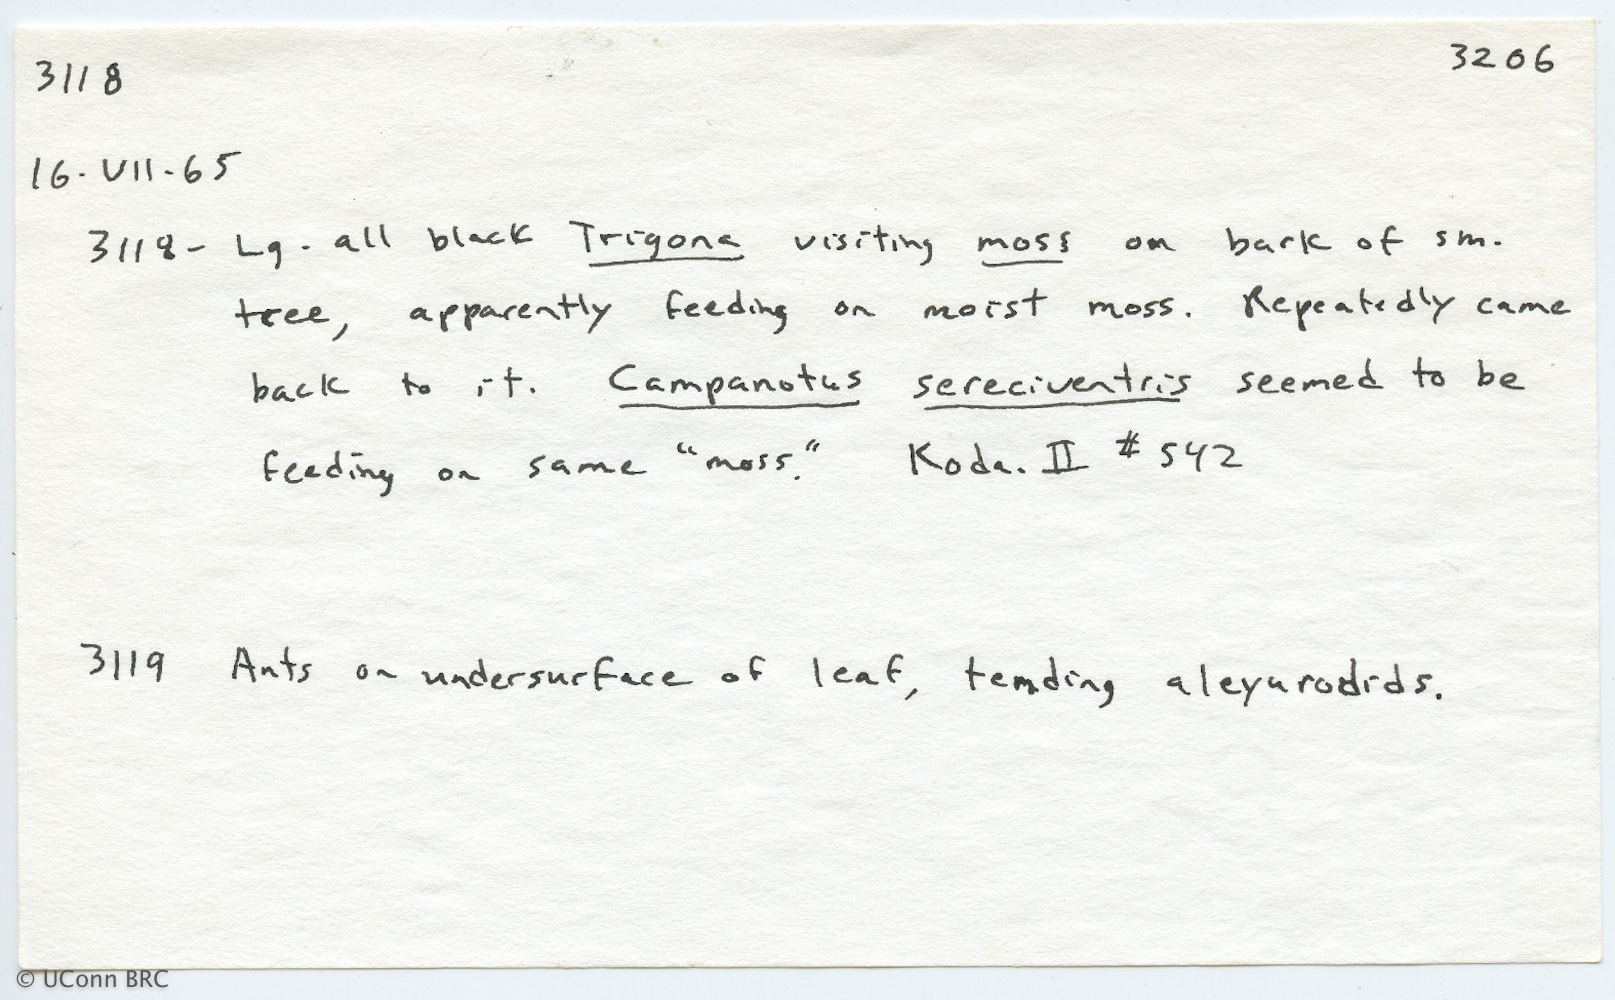 3118 3206
16-VII-65
3118- Lg. all black Trigona visiting moss on bark of sm.
tree, apparently feeding on moist moss. Repeatedly came
back to it. Campanotus sereciventris seemed to be
feeding on same "moss." Koda. II # 542
3119 Ants on undersurface of leaf, tending aleyurodids.
© UConn BRC